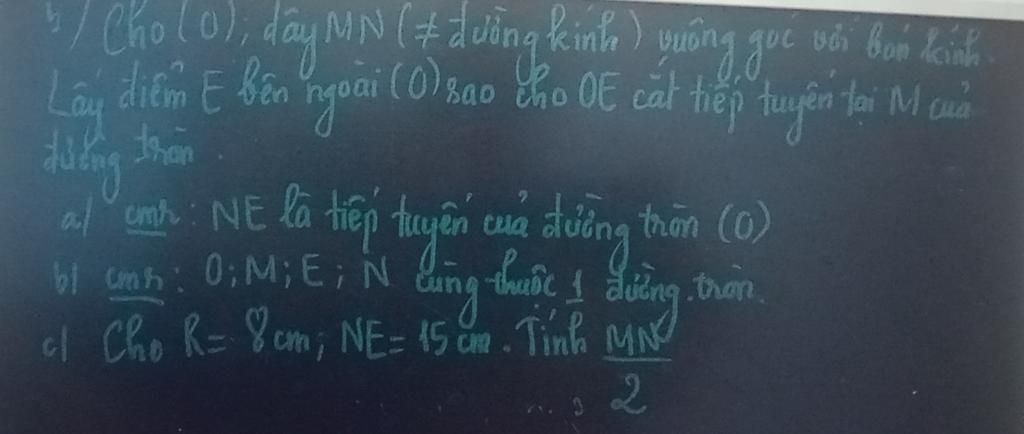 5/ Cho (O); dây MN (≠ đường kính) vuông góc với bán kính.
Lấy điểm E bên ngoài (O) sao cho OE cắt tiếp tuyến tại M của
đường tròn.
a/ cmr: NE là tiếp tuyến của đường tròn (O)
b/ cmr: O; M; E; N cùng thuộc 1 đường tròn.
c/ Cho R = 8cm; NE = 15cm. Tính MN/2